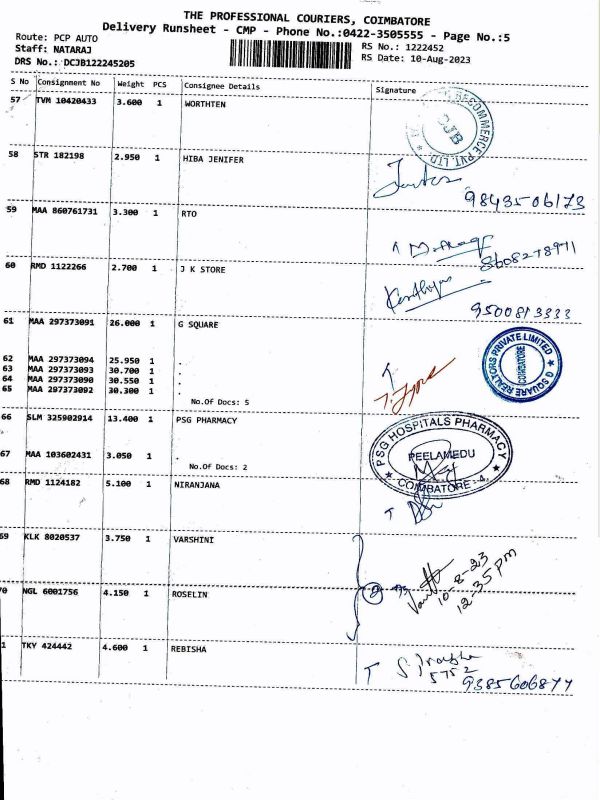 THE PROFESSIONAL COURIERS, COIMBATORE
Delivery Runsheet - CMP - Phone No.:0422-3505555 - Page No.:5
Route: PCP AUTO
Staff: NATARAJ
DRS No.: DCJB122245205
RS No.: 1222452
RS Date: 10-Aug-2023
S No Consignment No Weight PCS Consignee Details Signature
57 TVM 10420433 3.600 1 WORTHTEN
COMMERCE PVT. LTD.
CJB
58 STR 182198 2.950 1 HIBA JENIFER
9843506173
59 MAA 860761731 3.300 1 RTO
8608278971
60 RMD 1122266 2.700 1 J K STORE
9500813333
61 MAA 297373091 26.000 1 G SQUARE
62 MAA 297373094 25.950 1 .
63 MAA 297373093 30.700 1 .
64 MAA 297373090 30.550 1 .
65 MAA 297373092 30.300 1 .
No.Of Docs: 5
G SQUARE REALTORS PRIVATE LIMITED
COIMBATORE
66 SLM 325902914 13.400 1 PSG PHARMACY
PSG HOSPITALS PHARMACY
PEELAMEDU
COIMBATORE - 4
67 MAA 103602431 3.050 1 .
No.Of Docs: 2
68 RMD 1124182 5.100 1 NIRANJANA
69 KLK 8020537 3.750 1 VARSHINI
2
10-8-23
12-35 pm
70 NGL 6001756 4.150 1 ROSELIN
1 TKY 424442 4.600 1 REBISHA
5752
9385606877